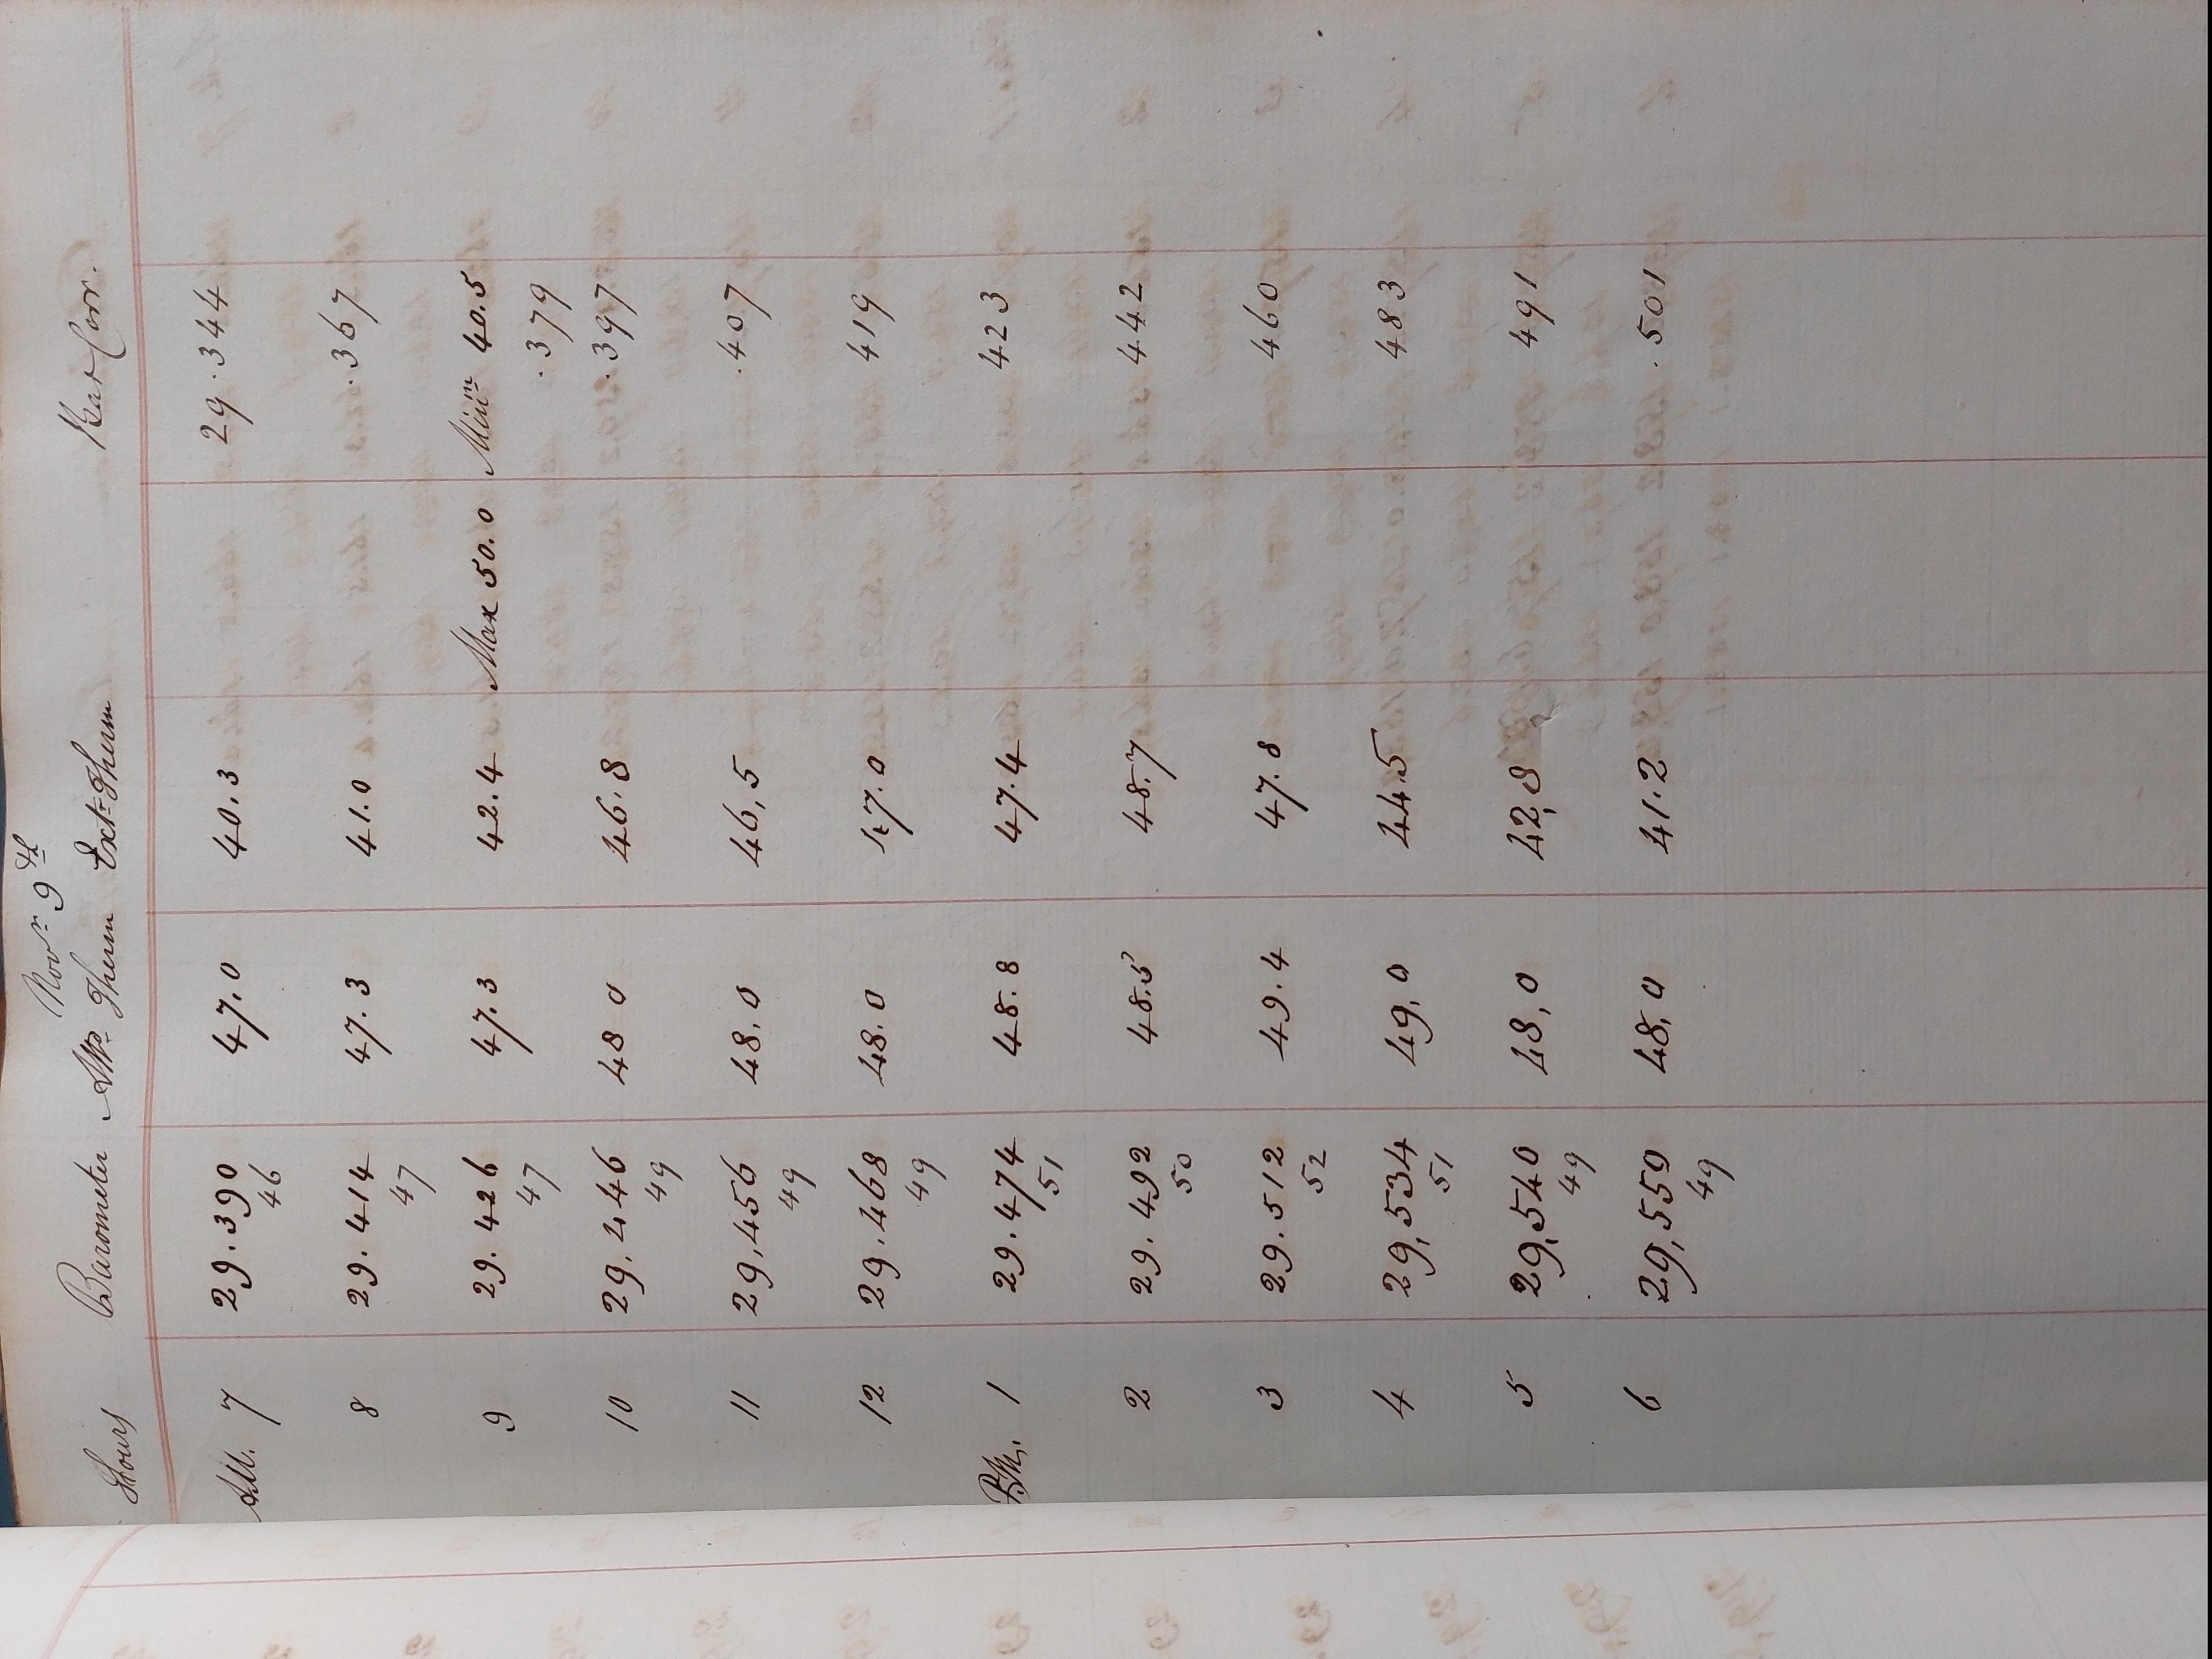 Novr 9th
Hours Barometer Attd Therm Extr Therm Bar Corr.
A.M. 7 29.390 47.0 40.3 29.344
46
8 29.414 47.3 41.0 .367
47
9 29.426 47.3 42.4 Max 50.0 Minm 40.5
47 .379
10 29,446 48 0 46.8 .397
49
11 29,456 48,0 46,5 .407
49
12 29.468 48.0 47.0 419
49
P.M. 1 29.474 48.8 47.4 423
51
2 29.492 48.5 48.7 442
50
3 29.512 49.4 47.8 460
52
4 29,534 49,0 44.5 483
51
5 29,540 48,0 42,8 491
49
6 29,550 48,0 41.2 .501
49